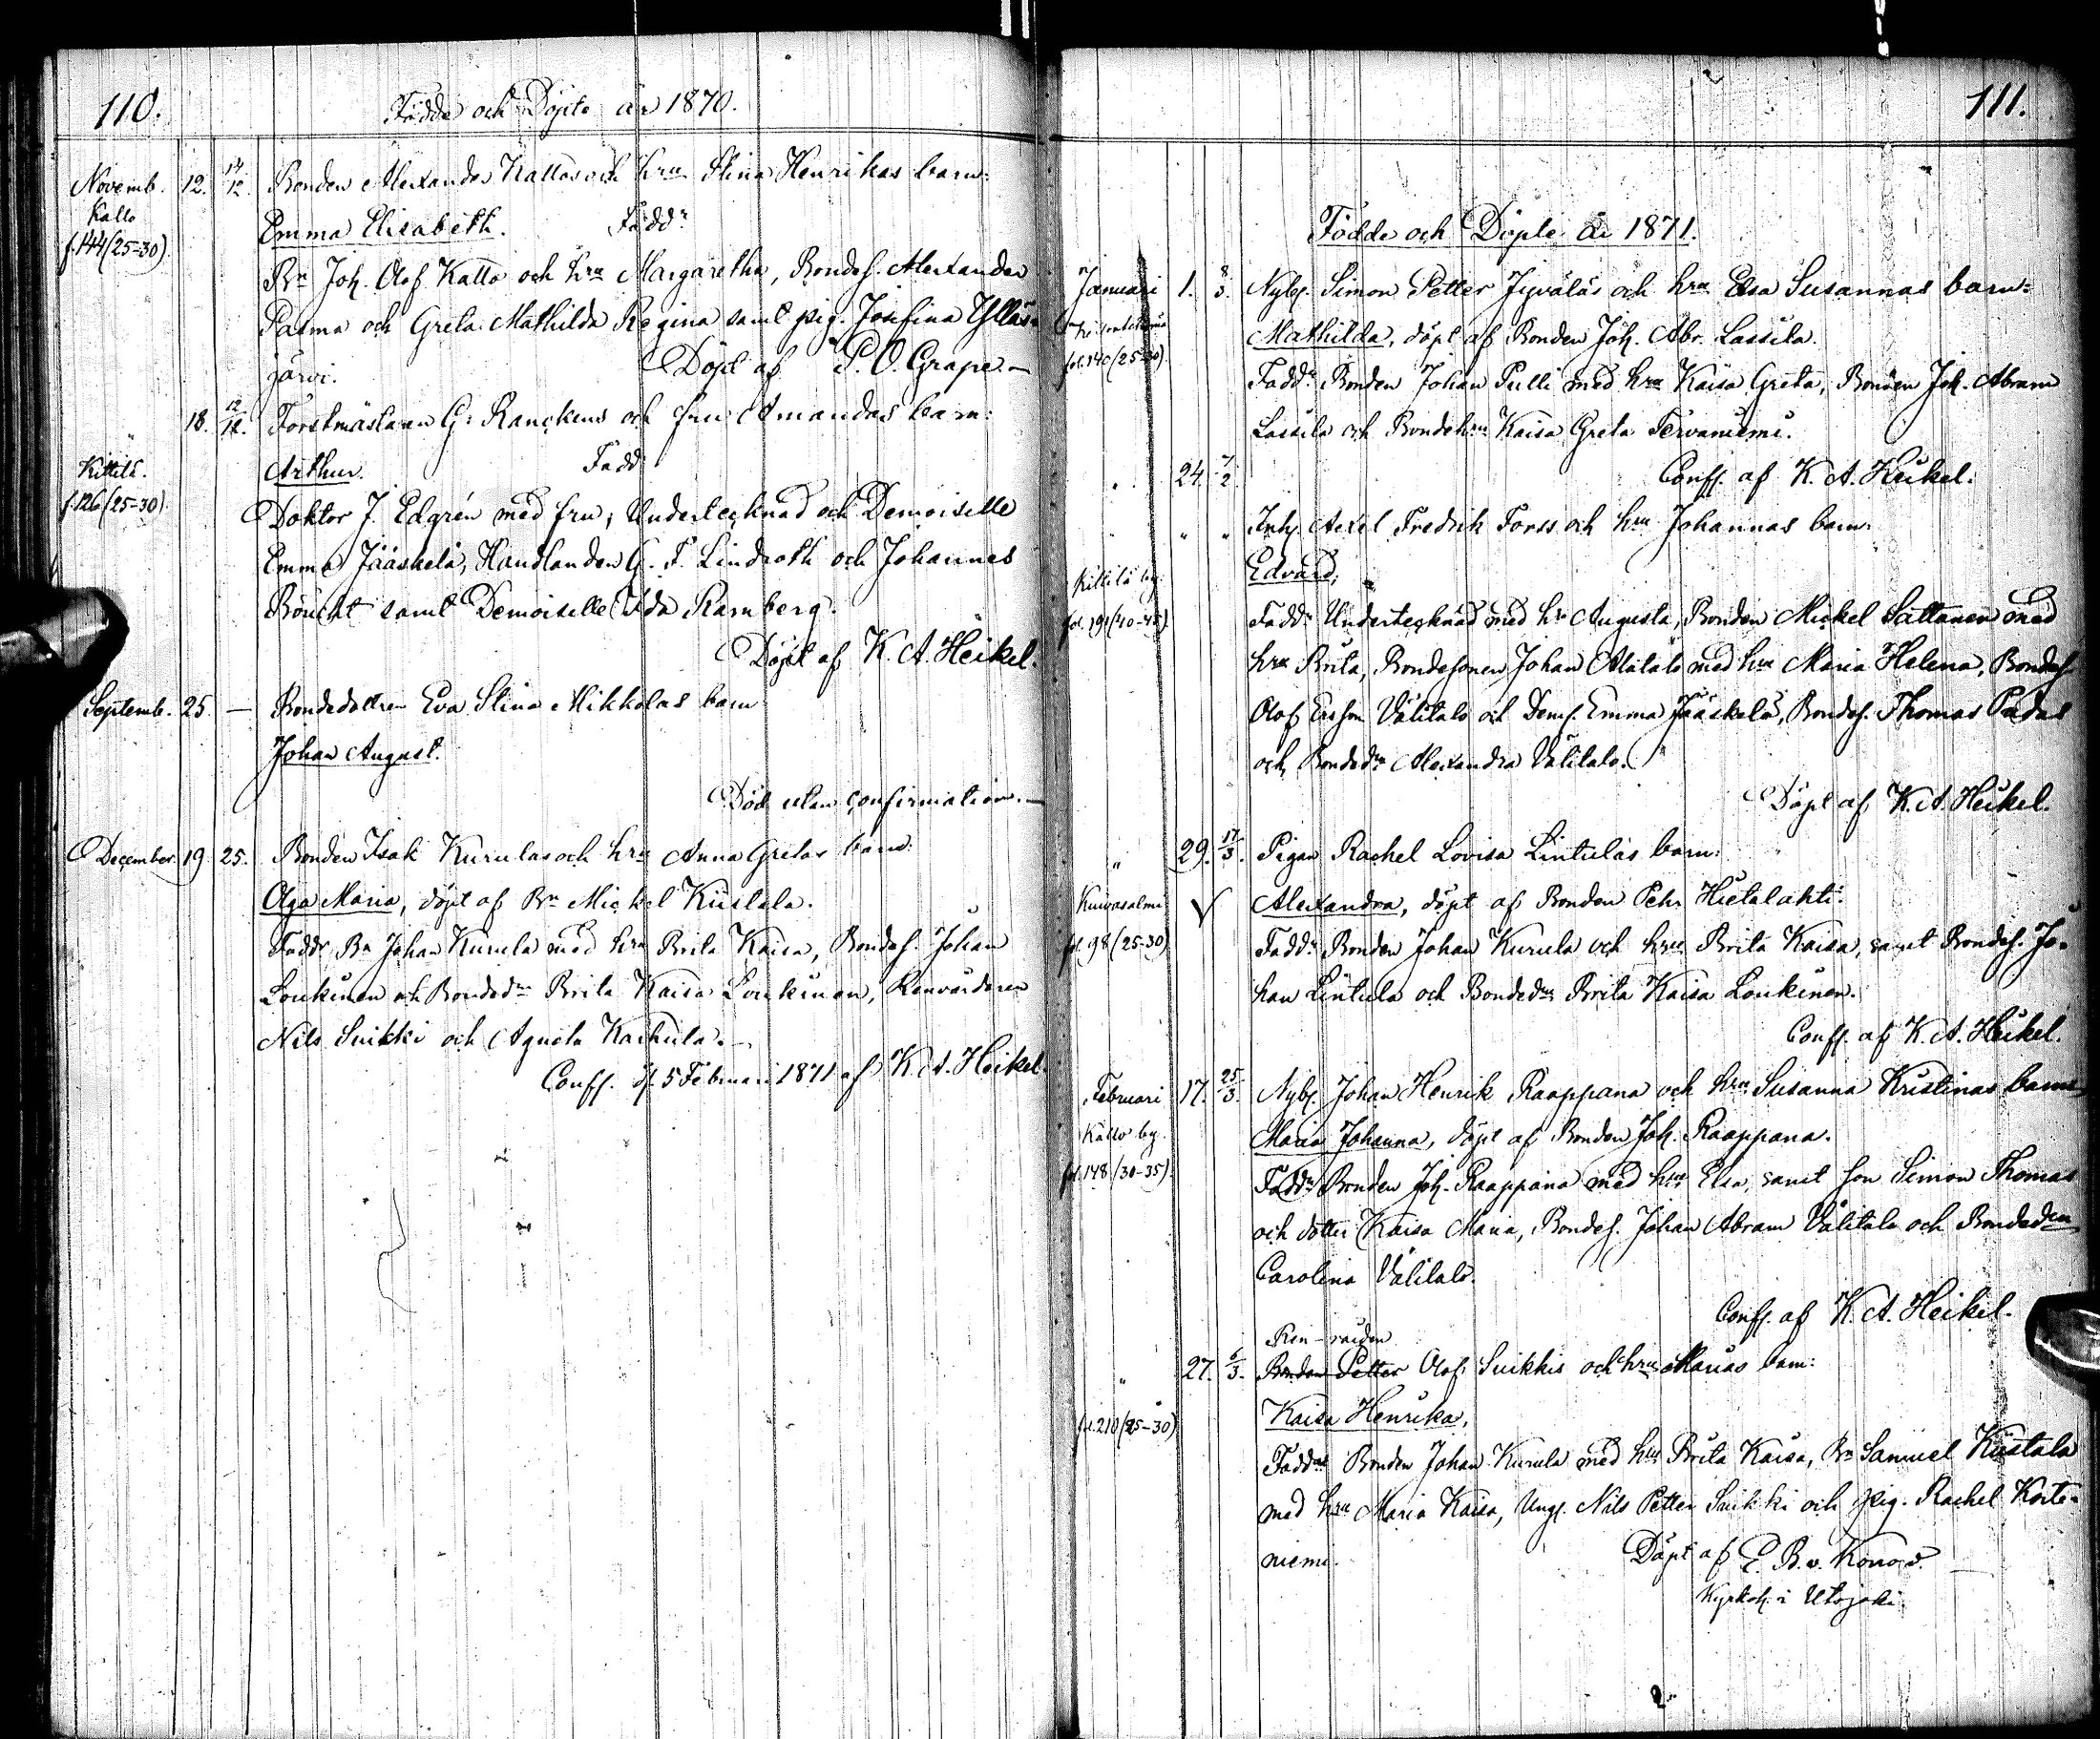 110.
Födde och Döpte år 1870.
Novemb. 12. 14/12. Bonden Alexander Kallos och hru Stina Henrikas barn:
Kallo
f. 144 (25-30).
Emma Elisabeth. Fadd:
Bn Joh. Olof Kallo och hru Margaretha, Bondes. Alexander
Palma och Greta Mathilda Regina samt pig. Josefina Ylläs-
järvi. Döpt af P. O. Grape.—
" 18. 12/12. Forstmästaren G. Ranckens och fru Amandas barn:
Kittilä.
f. 126 (25-30).
Arthur. Fadd
Doktor J. Edgrén med fru, Undertecknad och Demoiselle
Emma Jääskelä, Handlanden G. F. Lindroth och Johannes
samt Demoiselle Ida
Döpt af K. A. Heikel.
Septemb. 25. — Bondedottren Eva Stina Mikkolas barn
Johan August.
Död utan confirmation.—
December. 19. 25. Bonden Isak Kurulas och hru Anna Gretas barn:
Olga Maria, döpt af Bn Mickel Kiistala.
Faddr Bn Johan Kurula med hru Brita Kaisa, Bondes. Johan
Loukinen och Bondedn Brita Kaisa Loukinen, Renvårdaren
Nils Suikki och Agneta Kaukula.—
Conf. d. 5 Februari 1871 af K. A. Heikel.
111.
Födde och Döpte år 1871.
Januari 1. 8/3. Nyb. Simon Petter Jyväläs och hru Elsa Susannas barn:
fol. 140 (25-30)
Mathilda, döpt af Bonden Joh. Abr. Lassila.
Faddr Bonden Johan Pulli med hru Kaisa Greta, Bonden Joh. Abram
Lassila och Bondehru Kaisa Greta Tervaniemi.
" 24. 7/2. Conf. af K. A. Heikel.
" " " Inh. Axel Fredrik Forss och hru Johannas barn:
Edvard,
Kittilä by.
fol. 191 (40-45)
Faddr Undertecknad med hr Augusta, Bonden Mickel Sattanen med
hru Brita, Bondesonen Johan Alatalo med hru Maria Helena, Bondes
Olof Ersson Välitalo och Dems. Emma Jääskelä, Bondes. Thomas Padas
och Bondedn Alexandra Välitalo.
Döpt af K. A. Heikel.
" 29. 17/3. Pigan Rachel Lovisa Lintulas barn:
Kuivasalmi
fol. 98 (25-30)
Alexandra, döpt af Bonden Pehr Hietalahti.
Faddr Bonden Johan Kurula och hru Brita Kaisa, samt Bondes. Jo-
han Lintula och Bondedn Brita Kaisa Loukinen.
Conf. af K. A. Heikel.
Februari 17. 25/3. Nyb. Johan Henrik Raappana och hru Susanna Kristinas barn
Kallo by.
fol. 148 (30-35).
Maria Johanna, döpt af Bonden Joh. Raappana.
Faddr Bonden Joh. Raappana med hru Elsa, samt son Simon Thomas
och dotter Kaisa Maria, Bondes. Johan Abram Välitalo och Bondedn
Carolina Välitalo.
Conf. af K. A. Heikel.
Ren-vården
" 27. 6/3. Bonden Petter Olof Suikkis och hru Marias barn:
fol. 210 (25-30)
Kaisa Henrika,
Faddr Bonden Johan Kurula med hru Brita Kaisa, Bn Samuel Kiistala
med hru Maria Kaisa, Ungl. Nils Petter Suikki och pig. Rachel Korte-
niemi.
Döpt af E. B. v. Konow.
Kyrkoh. i Utsjoki.